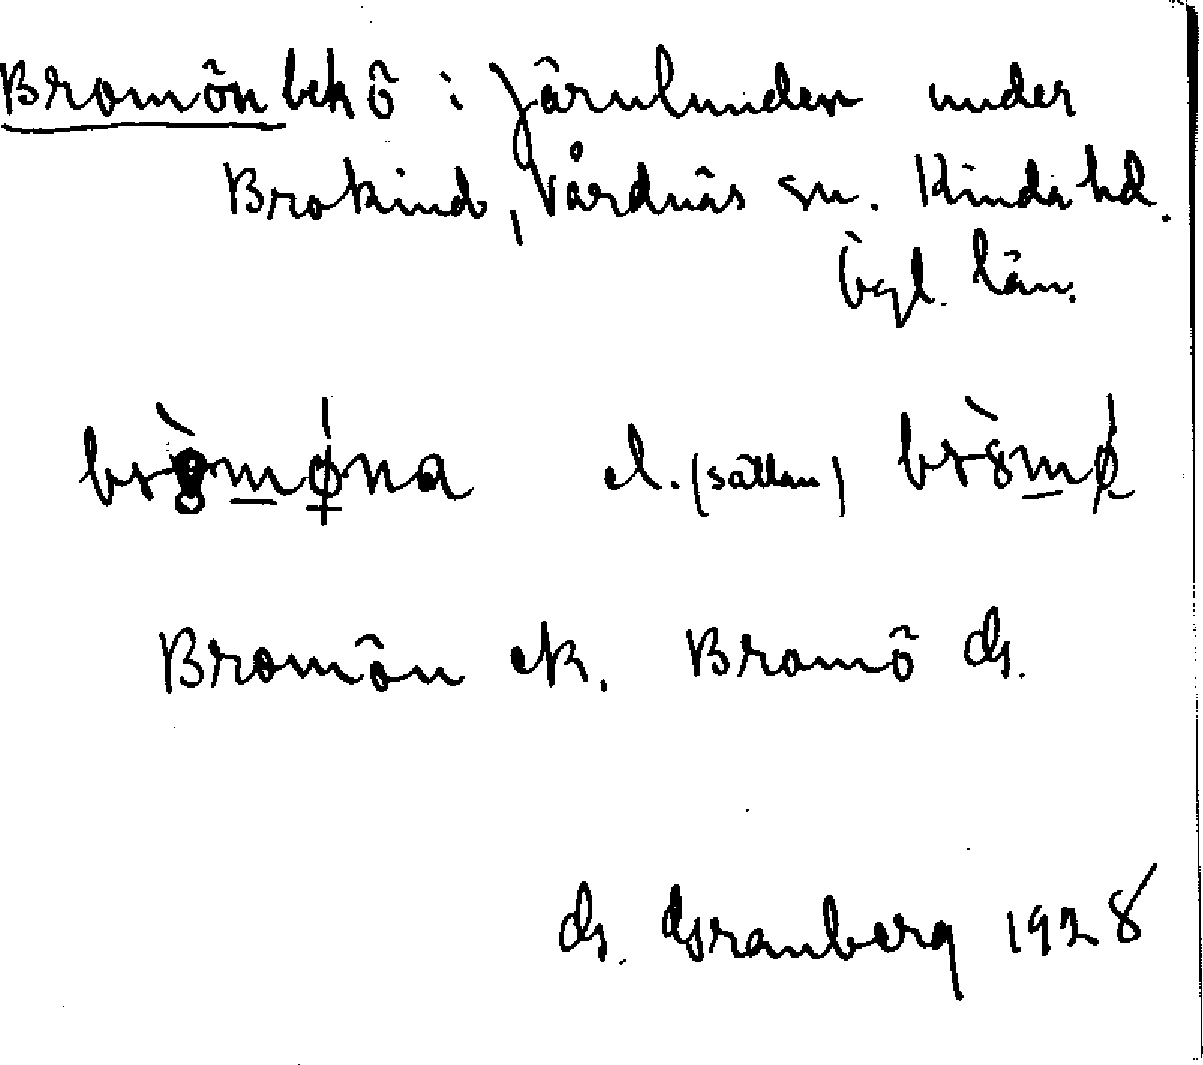 Bromön beb ö i Järnlunden under
Brokind, Vårdnäs sn. Kinda hd.
Ögl. län.
el. (sällan)
Bromön ek. Bromö G.
G. Granberg 1928